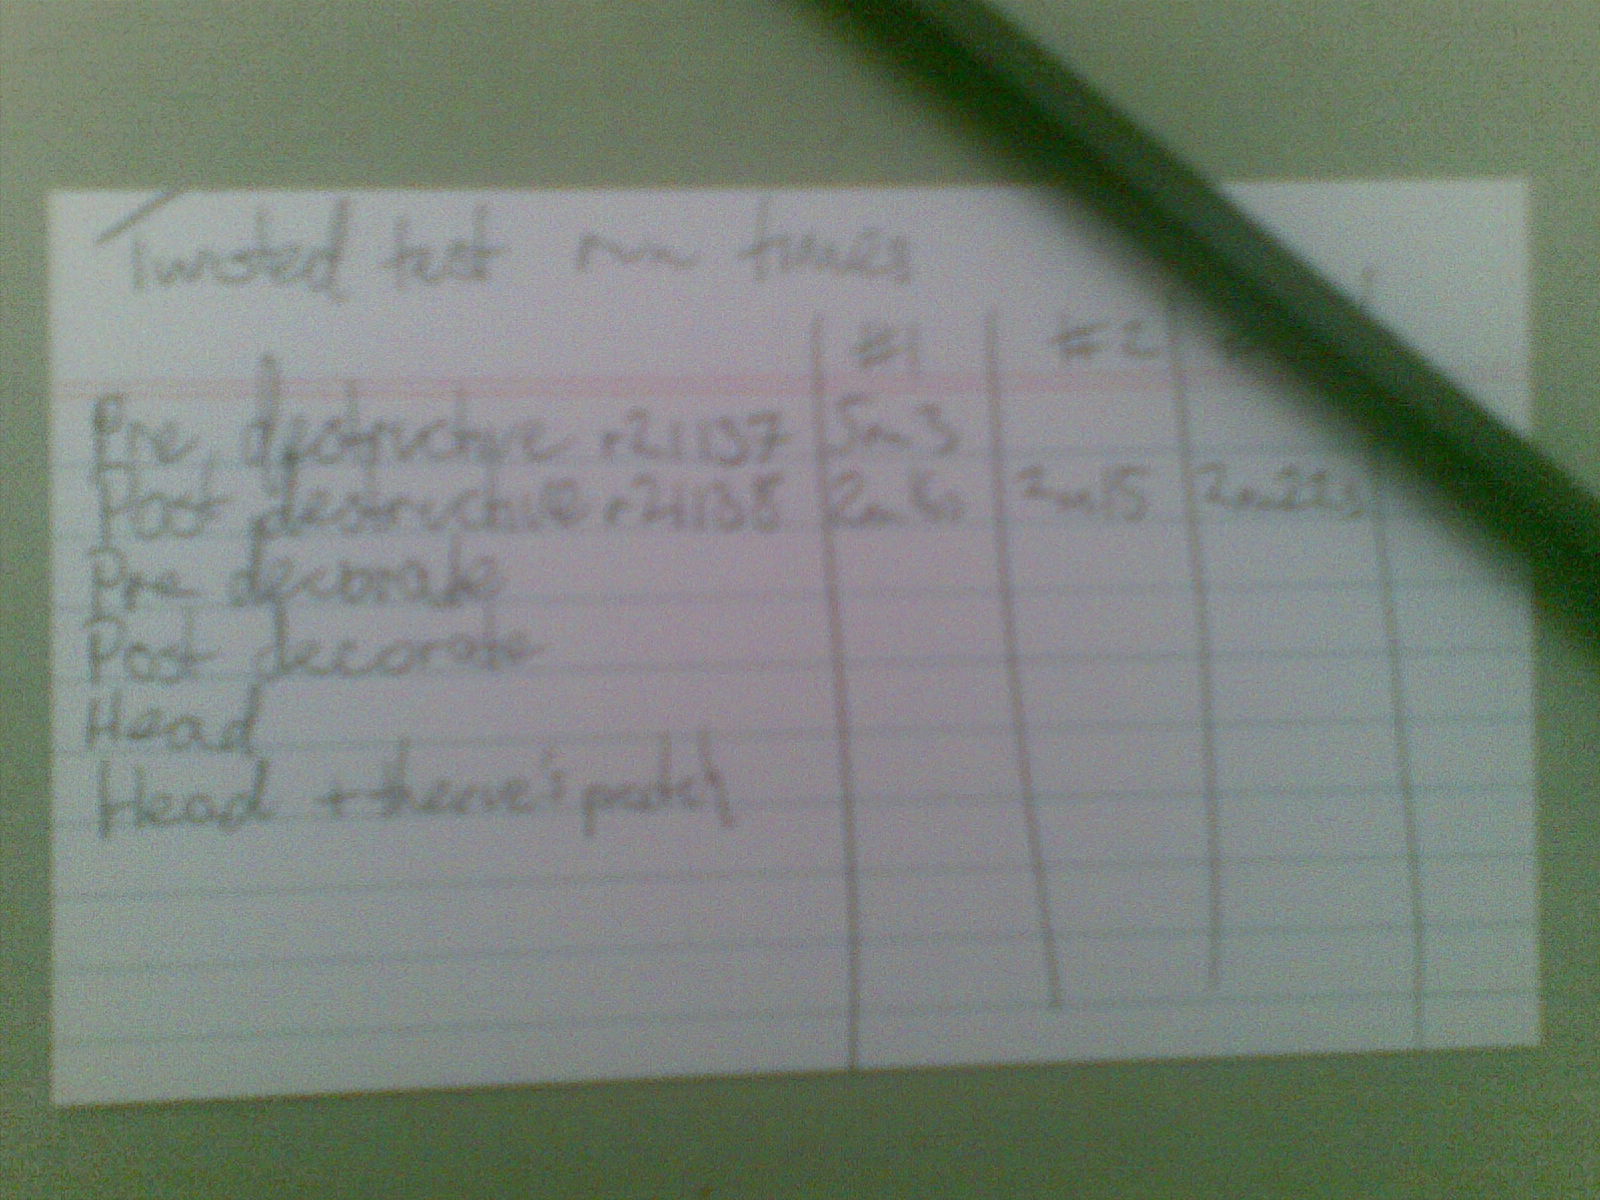 Twisted test run times
#1 #2
Pre destructive r21137 5m3
Post destructive r21138 2m15
Pre decorate
Post decorate
Head
Head + therve's patch